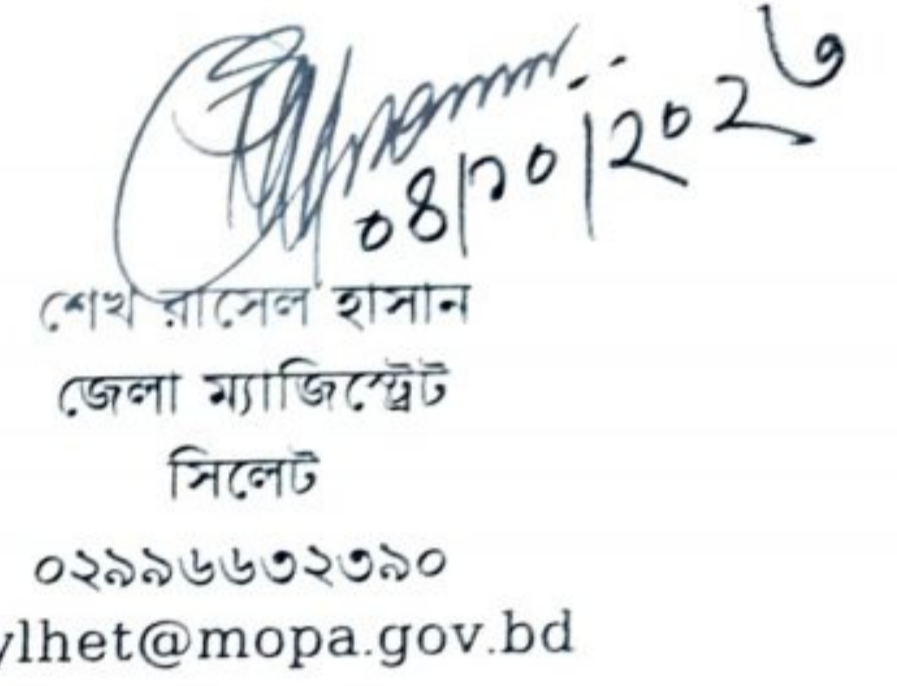 ০৪/১০/২০২৬
শেখ রাসেল হাসান
জেলা ম্যাজিস্ট্রেট
সিলেট
০২৯৯৬৬৩২৩৯০
ylhet@mopa.gov.bd